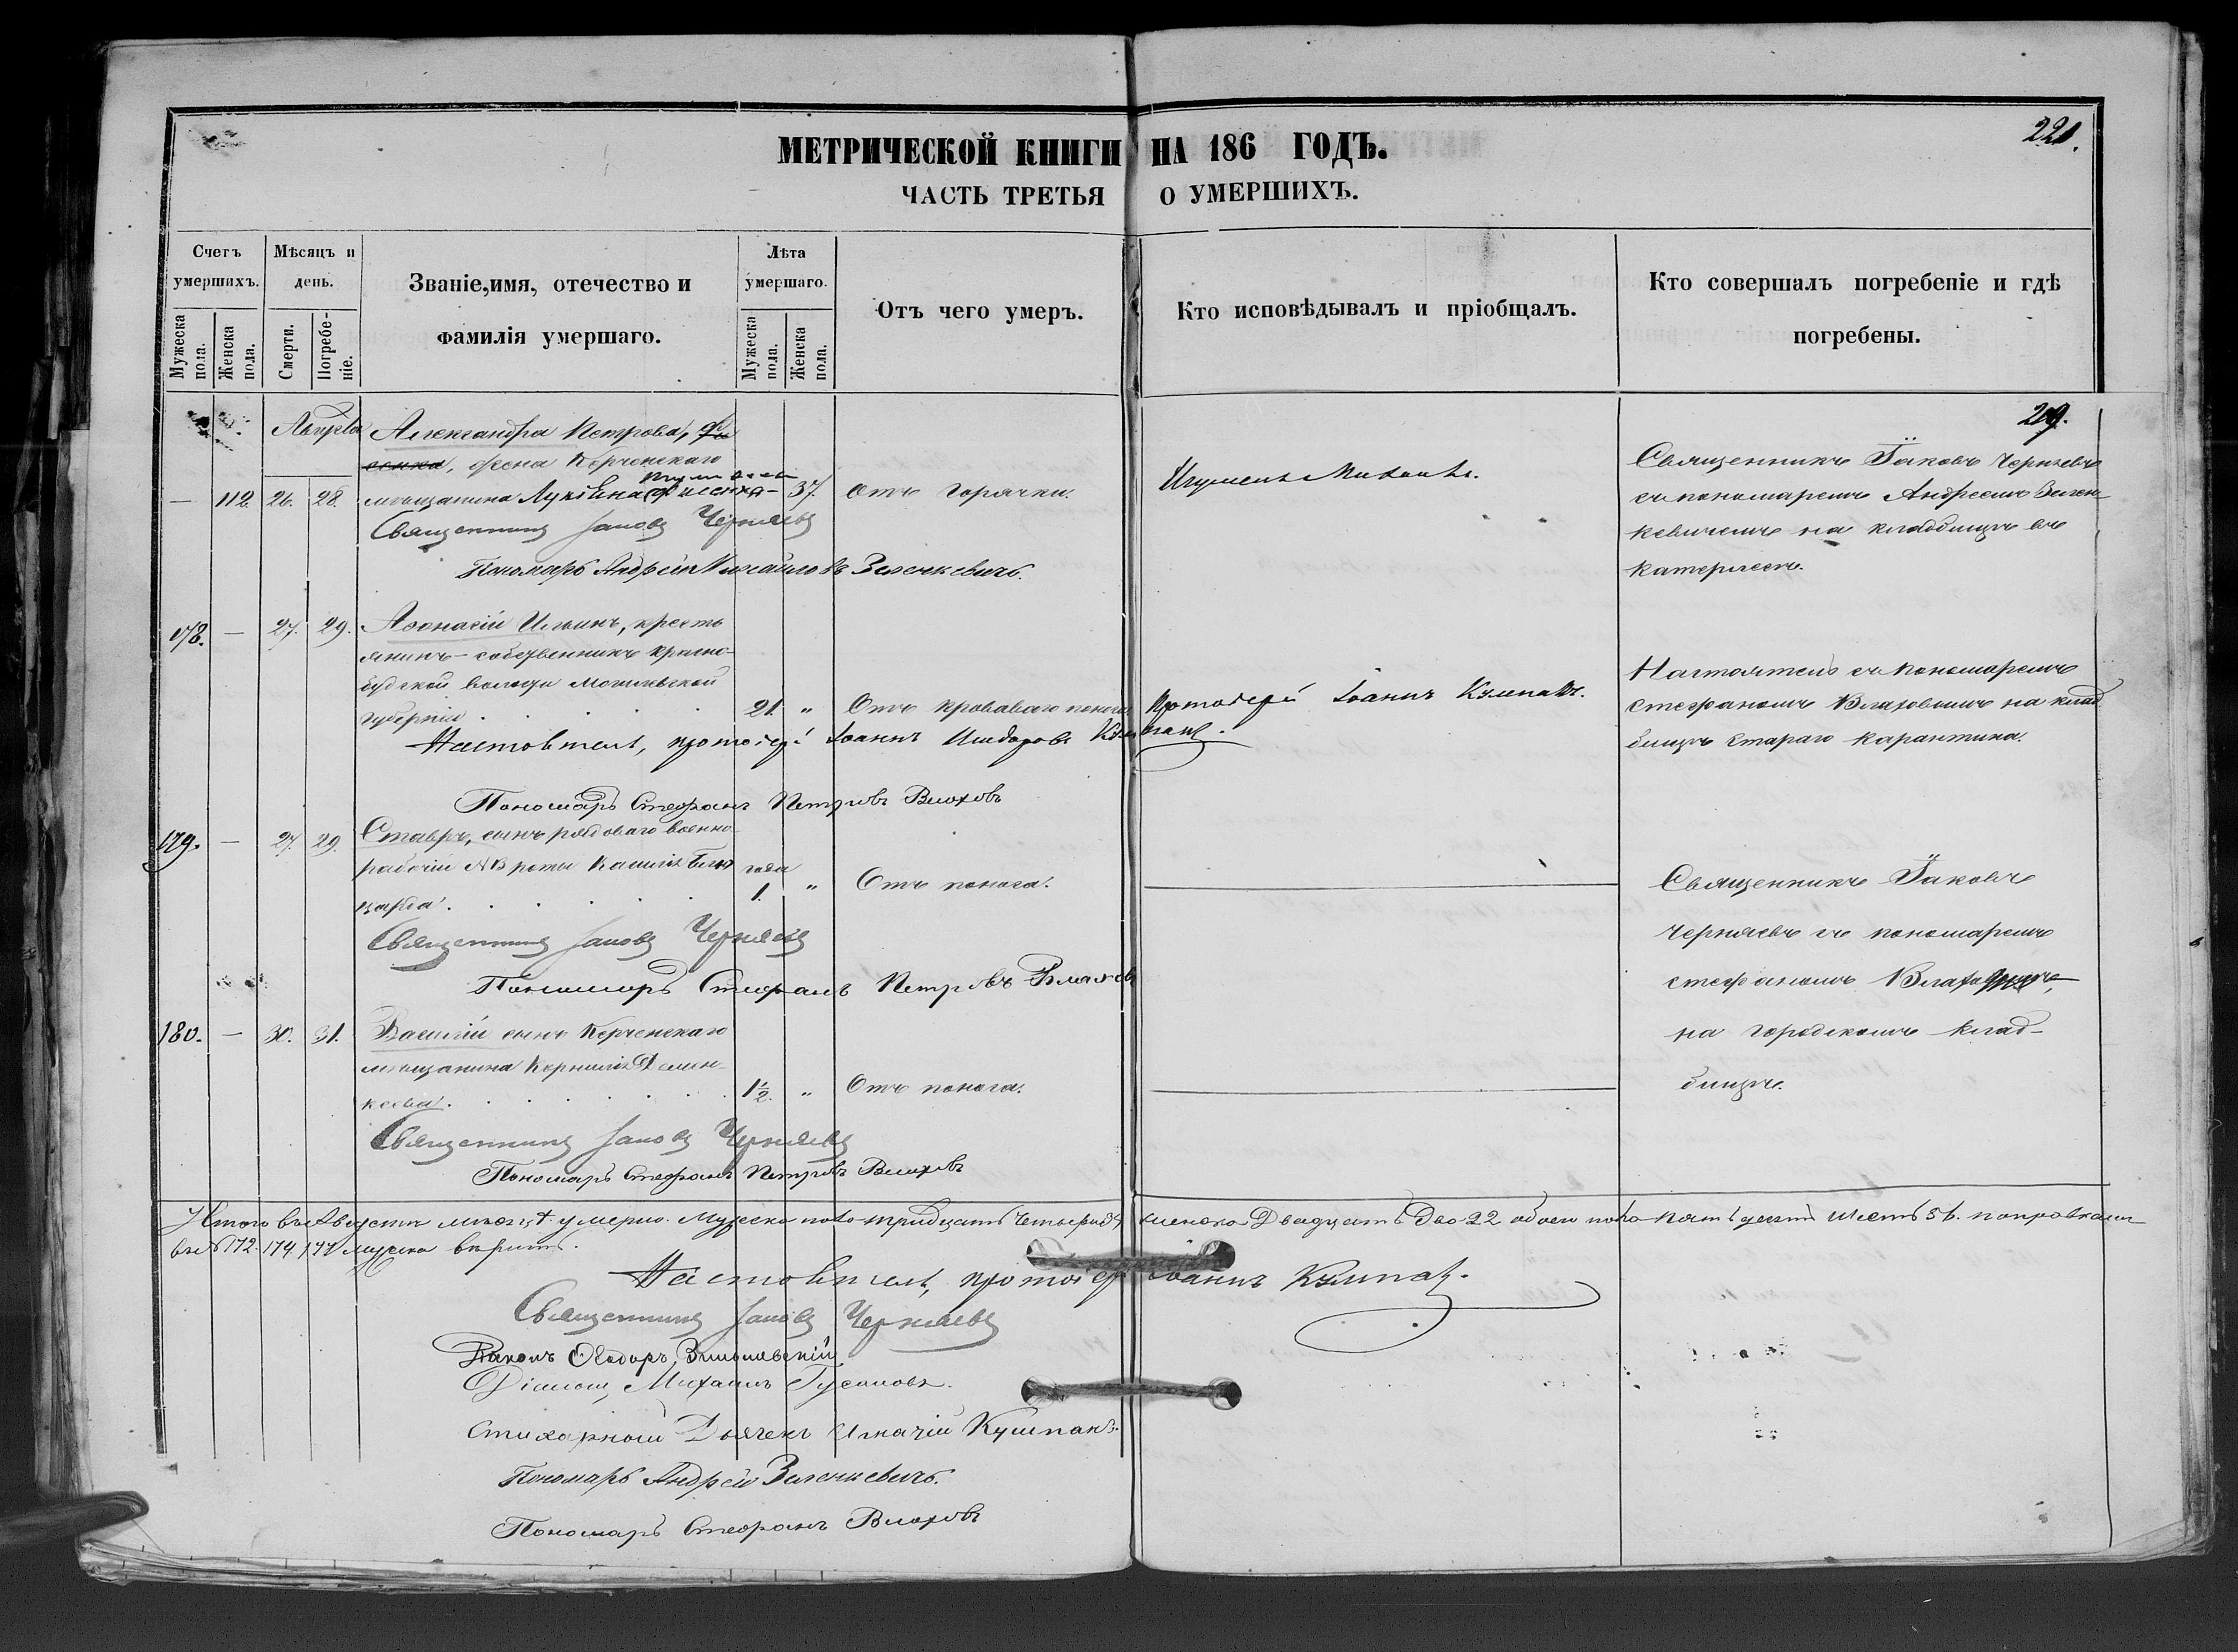 МЕТРИЧЕСКОЙ КНИГИ НА 186 ГОДЪ.
221.
ЧАСТЬ ТРЕТЬЯ О УМЕРШИХЪ.
Счетъ умершихъ.
Мужеска пола.
Женска пола.
Мѣсяцъ и день.
Смерти.
Погребеніе.
Званіе, имя, отечество и
фамилія умершаго.
Лѣта умершаго.
Мужеска пола.
Женска пола.
Отъ чего умеръ.
Кто исповѣдывалъ и пріобщалъ.
Кто совершалъ погребеніе и гдѣ
погребены.
29.
Августа
Александра Петрова,
жена Керченскаго
— 112. 26. 28. мѣщанина 37. Отъ горячки.
Игуменъ
Священникъ Іаковъ Черняевъ
съ пономаремъ Андреемъ Зелен-
кевичемъ на кладбищѣ въ
Священникъ Іаковъ Черняевъ
Пономарь Андрей Михайловъ Зеленкевичъ.
178. — 27. 29. Аѳонасій Ильинъ, кресть
янинъ-собственникъ красно-
будской волости Могилевской
губерніи 21. „ Отъ кроваваго поноса
Протоіерей Іоаннъ Кумпанъ.
Настоятель съ пономаремъ
Стефаномъ Влаховымъ на клад
бищѣ Стараго Карантина.
Настоятель, протоіерей Іоаннъ Кумпанъ.
Пономарь Стефанъ Петровъ Влаховъ
179. — 27. 29. Ставръ, сынъ рядоваго военно-
рабочій роты
года
1. „ Отъ поноса.
Священникъ Іаковъ
Черняевъ съ пономаремъ
Стефаномъ
на городскомъ клад-
бищѣ.
Священникъ Іаковъ Черняевъ
Пономарь Стефанъ Петровъ Влаховъ
180. — 30. 31. Василій сынъ Керченскаго
мѣщанина Корнилія Демен-
1½. „ Отъ поноса.
Священникъ Іаковъ Черняевъ
Пономарь Стефанъ Петровъ Влаховъ
Итого въ Августѣ мѣсяцѣ умерло. Мужеска пола тридцать четыре 34 женска Двадцать Два 22 обоего пола пятьдесятъ шесть 56.
въ № 172. 174 177 мужска вѣрить.
Настоятель, протоіерей Іоаннъ Кумпанъ.
Священникъ Іаковъ Черняевъ
Діаконъ Ѳеодоръ
Діаконъ, Михаилъ Гусаковъ.
Стихарный Дьячекъ Игнатій Кушпакъ.
Пономарь Андрей Зеленкевичъ.
Пономарь Стефанъ Влаховъ